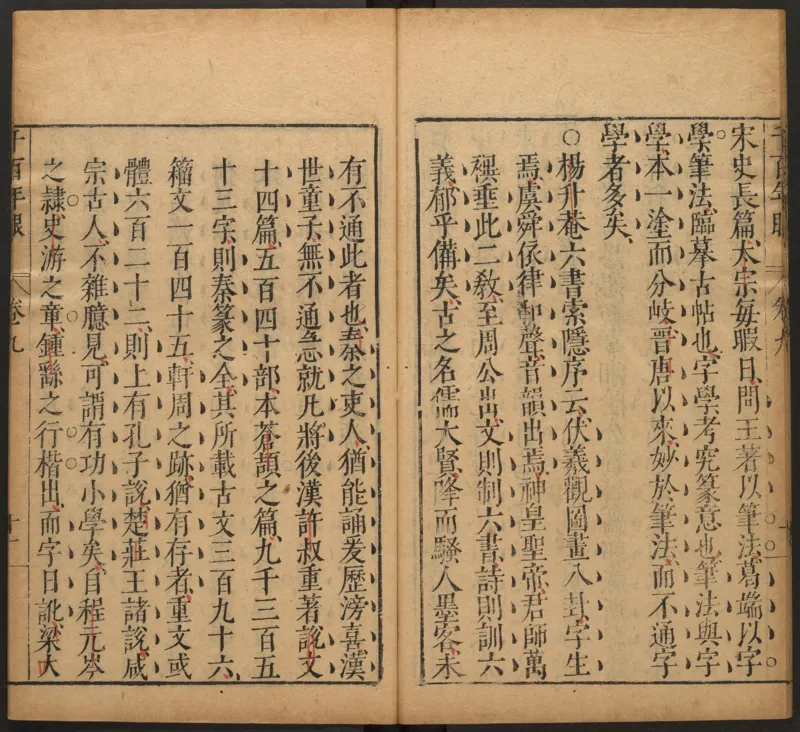 千百年眼 卷九
宋史長篇、太宗每暇日、問王著以筆法、葛端以字
學筆法、臨摹古帖也、字學考究篆意也、筆法與字
學、本一塗而分岐、晉唐以來、妙於筆法、而不通字
學者多矣、
○楊升菴六書索隱序云、伏羲觀圖畫八卦、字生
焉、虞舜依律聲、音韻出焉、神皇聖帝、君師萬
禩、垂此二敎、至周公出、文則制六書、詩則訓六
義、郁乎備矣、古之名儒大賢、降而騷人墨客、未
有不通此者也、秦之吏人、猶能誦爰歷滂喜、漢
世童子、無不通急就凡將、後漢許叔重著說文
十四篇、五百四十部、本蒼頡之篇、九千三百五
十三字、則秦篆之全、其所載古文三百九十六、
籀文一百四十五、軒周之跡、猶有存者、重文或
體六百二十二、則上有孔子說、楚莊王諸說、咸
宗古人、不雜臆見、可謂有功小學矣、自程元岑
之隸、史游之章、鍾繇之行楷出、而字日訛、梁大
千百年眼 卷九 十一